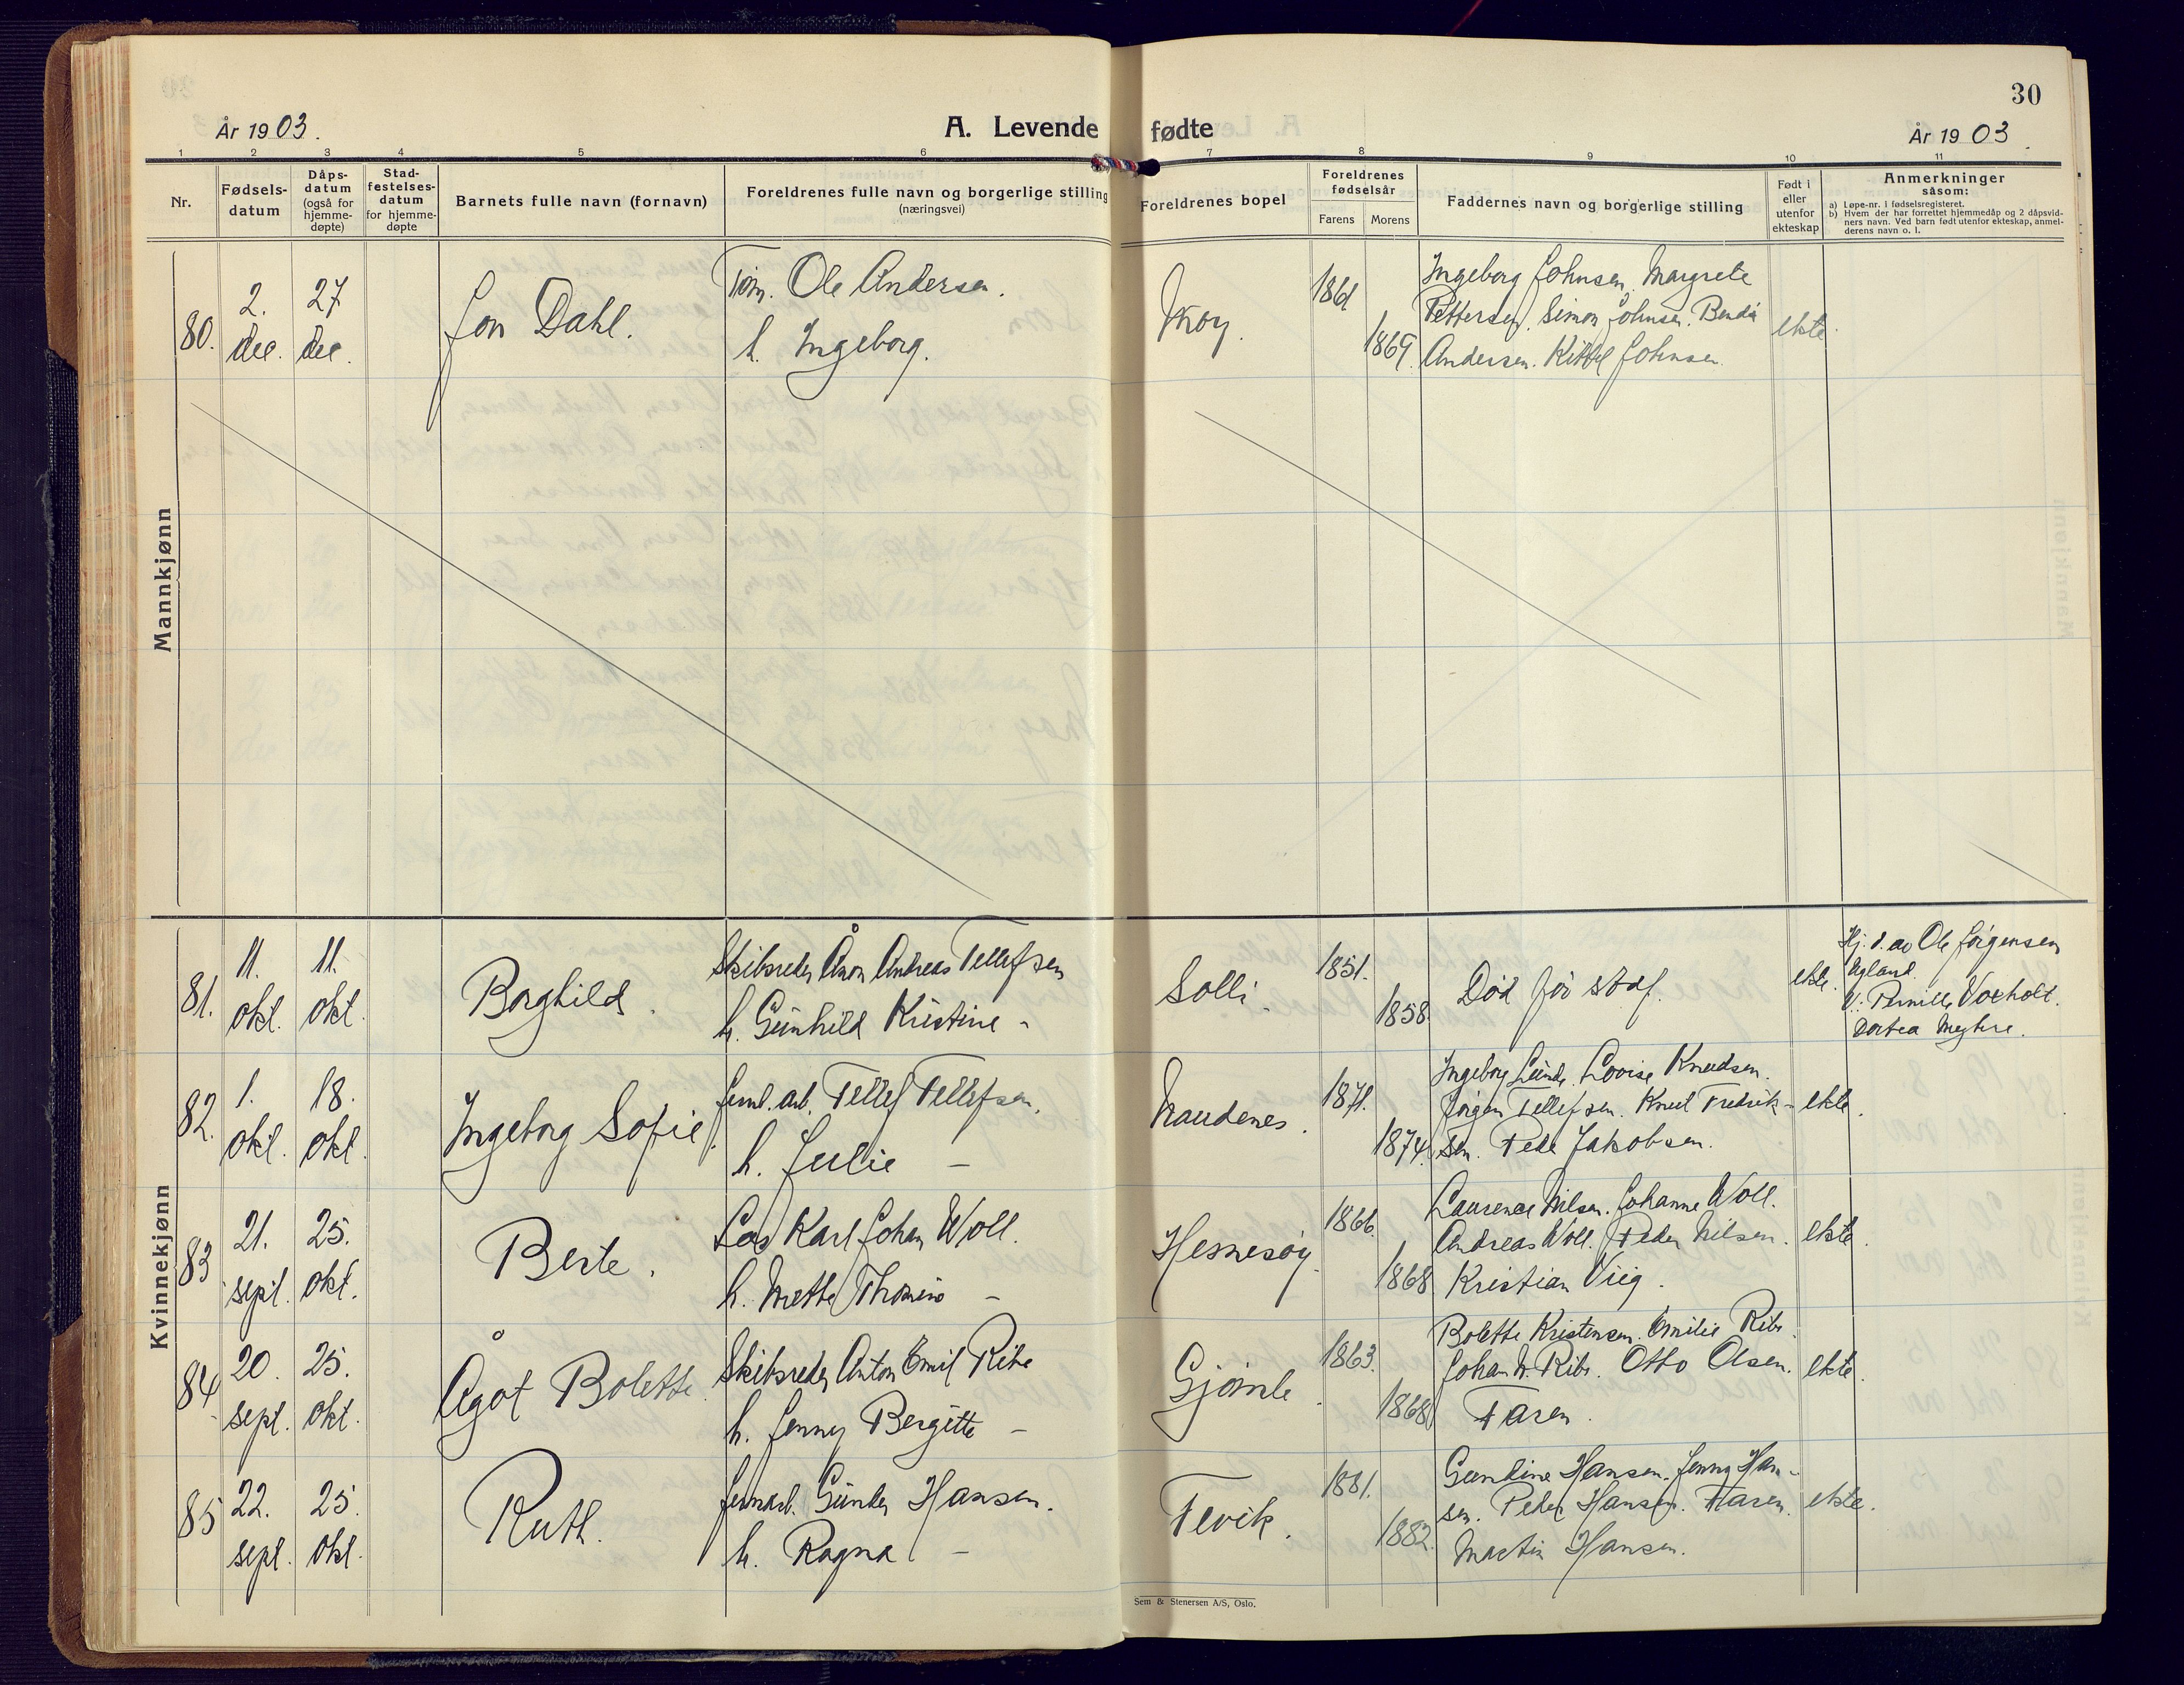 30
År 1903.
A. Levende fødte
År 1903.
1 2 3 4 5 6 7 8 9 10 11
Nr.
Fødsels-
datum
Dåps-
datum
(også for
hjemme-
døpte)
Stad-
festelses-
datum
for hjemme-
døpte
Barnets fulle navn (fornavn)
Foreldrenes fulle navn og borgerlige stilling
(næringsvei)
Foreldrenes bopel
Foreldrenes
fødselsår
Farens Morens
Faddernes navn og borgerlige stilling
Født i
eller
utenfor
ekteskap
Anmerkninger
såsom:
a) Løpe-nr. i fødselsregisteret.
b) Hvem der har forrettet hjemmedåp og 2 dåpsvid-
ners navn. Ved barn født utenfor ekteskap, anmel-
derens navn o. l.
Mannkjønn
80.
2.
dec.
27
dec.
Jon Dahl.
Tøm. Ole Andersen.
h. Ingeborg.
1861
1869.
Ingeborg Johnsen. Margrete
Pettersen. Simon Johnsen.
Andersen. Kittel Johnsen.
ekte.
Kvinnekjønn
81.
11.
okt.
11.
okt.
Borghild.
Skibsreder Anon Andreas Tellefsen
h. Gunhild Kristine -
Solli.
1851.
1858.
Død før stadf.
ekte.
Hj. d. av Ole Jørgensen
Ugland.
V: Pernille Voxholt.
Dortea
82.
1.
okt.
18.
okt.
Ingeborg Sofie.
Jernl. arb. Tellef Tellefsen.
h. Julie -
Naudenes.
1871.
1874.
Ingeborg Lunde. Lovise Knudsen.
Jørgen Tellefsen. Knut Fredrik-
sen. Peder Jakobsen.
ekte.
83
21.
sept.
25.
okt.
Berte.
Los Karl Johan Woll.
h. Mette Thomine -
Hesnesøy.
1866.
1868
Laurence Nilsen. Johanne Woll.
Andreas Woll. Peder Nilsen.
Kristian Viig.
ekte.
84
20.
sept.
25.
okt.
Ågot Bolette.
Skibsreder Anton Emil Ribe
h. Jenny Bergitte -
Gjømle.
1863.
1868
Bolette Kristensen. Emilie Ribe.
Johan N. Ribe. Otto Olsen.
Faren.
ekte.
85
22.
sept.
25.
okt.
Ruth.
Jernarb. Gunder Hansen.
h. Ragna -
Fevik.
1881.
1882.
Gundine Hansen. Jenny Han-
sen. Peder Hansen. Faren.
Martin Hansen.
ekte.
Sem & Stenersen A/S, Oslo.